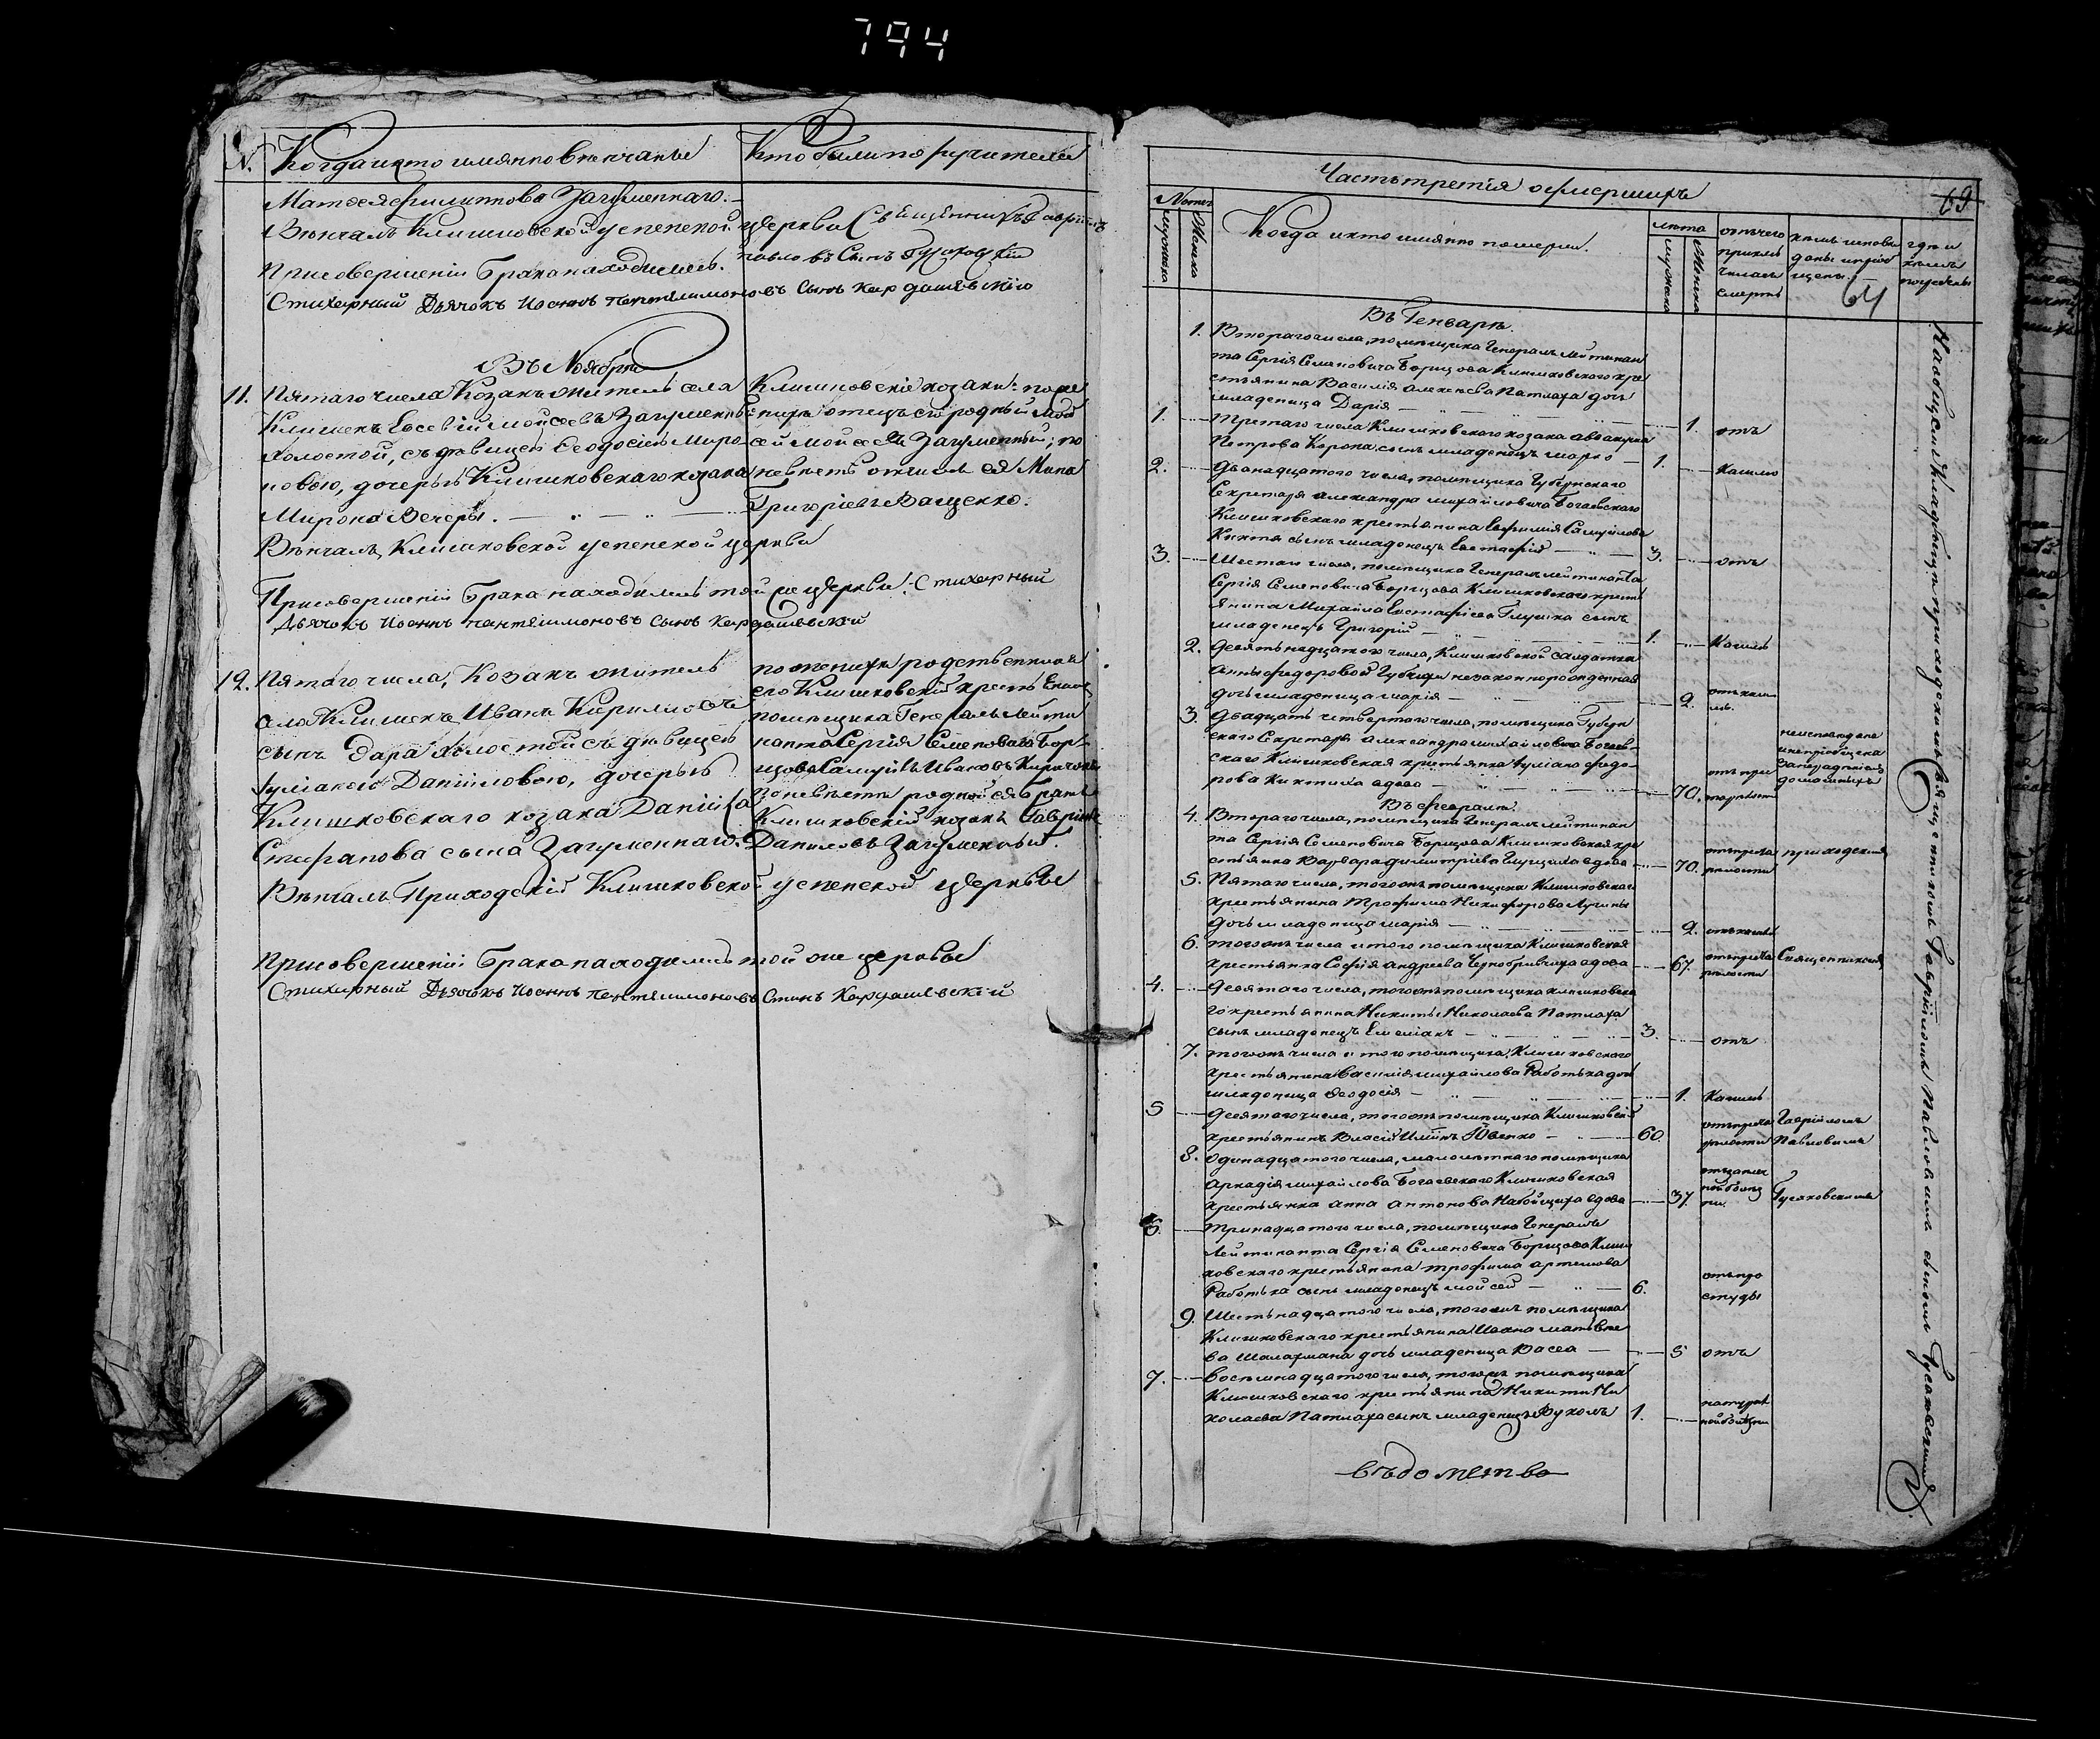 794
N. Когда и кто имянно венчаны Кто были поручители
Матфея Филиппова Загуменнаго.
Венчалъ Клишковской успенской церкви Священникъ Гавриилъ
Павловъ сынъ Гусаковскій
При совершеніи брака находились.
Стихарный Дьячокъ Иоаннъ Пантелимоновъ сынъ Кардашевскій
Въ Ноябрѣ
11. Пятаго числа Козакъ житель села
Клишекъ Евсевій Мойсеевъ Загуменный
холостой, съ дѣвицею Феодосіею Миро-
новою, дочерью Клишковскаго козака
Мирона Вечеры.
Клишковскіе козаки: по же
нихѣ отецъ его родный Мой
сей Мойсеевъ Загуменный; по
невѣстѣ отчимъ ея Мина
Григоріевъ Ващенко.
Вѣнчалъ Клишковской успенской церкви
При совершеніи брака находились той же церкви Стихарный
Дьячокъ Иоаннъ Пантелимоновъ сынъ Кардашевскій
12. Пятаго числа, Козакъ житель
села Клишекъ Иванъ Кириловъ
сынъ холостой съ дѣвицею
Іуліаною Данііловою, дочерью
Клишковскаго козака Данііла
Стефанова сына Загуменнаго.
по женихѣ родственникъ
его Клишковскій крестьянинъ
помѣщика Генералъ Лейти
нанта Сергія Семеновича Бор-
щова Самуилъ Ивановъ
по невѣстѣ родной ея братъ
Клишковскій козакъ Гавріилъ
Даниловъ Загуменный.
Вѣнчалъ Приходскій Клишковской успенской церкви
При совершеніи брака находились той же церкви
Стихарный Дьячокъ Иоаннъ Пантелимоновъ Сынъ Кардашевскій
Часть третія о умершихъ
69
мужеска
женска
Когда и кто имянно померли.
лѣта
мужеска
женска
отъ чего
приклю
чилась
смерть
кѣмъ исповѣ
даны и пріоб
щены
гдѣ и
кѣмъ
погребены
64
Въ Генварѣ.
1. Втораго числа, помѣщика Генералъ Лейтинан
та Сергія Семеновича Борщова Клишковскаго кре
стьянина Василія Алексѣева Патлаха дочь
младеница Дарія 1. отъ
1. Третаго числа Клишковскаго козака Аввакума
Петрова сынъ младенецъ Марко 1. кашлю
2. Дванадцатого числа, помѣщика Губернскаго
Секретаря Александра Михайловича Богаевскаго
Клишковскаго крестьянина Евфимія Самуйлова
Кихтя сынъ младенецъ Евстафій 3. отъ
3. Шестаго числа, помѣщика Генералъ лейтинанта
Сергія Семеновича Борщова Клишковскаго кресть
янина Михайла Евстафіева Глушка сынъ
младенецъ Григорій 1. кашлю
2. Девятьнадцатого числа, Клишковской салдатки
Анны Федоровой незаконнорожденная
дочь младеница Марія 2. отъ каш
лю.
3. Двадцать четвертаго числа, помѣщика Губерн
скаго Секретаря Александра Михайловича Богаев-
скаго Клишковская крестьянка Іуліана Федо-
рова Кихтиха вдова 70.
неисповѣдана
и непріобщена
за нерадѣніемъ
домашныхъ
Въ Февралѣ.
4. Втораго числа, помѣщика Генералъ лейтинан
та Сергія Семеновича Борщова Клишковская кре
стьянка Варвара Димитріева вдова 70. отъ преста
релости приходскимъ
5. Пятаго числа, того жъ помѣщика Клишковскаго
крестьянина Трофима Никифорова Лучины
дочь младеница Марія 2. отъ кашлю
6. того жъ числа и того помѣщика Клишковская
крестьянка Софія Андреева Чернобривчиха вдова 67. отъ преста
релости Священникомъ
4. Девятаго числа, того жъ помѣщика Клишковска
го крестьянина Никиты Николаева Патлаха
сынъ младенецъ Емеліанъ 3. отъ
7. того жъ числа и того помѣщика Клишковскаго
крестьянина Василія Михайлова Работька дочь
младеница Феодосія 1. кашлю
5 Десятаго числа, того жъ помѣщика Клишковскій
крестьянинъ Власій Илиинъ Ювенко 60. отъ преста
релости Гавріиломъ
Павловымъ
8. Одинадцатого числа, малолѣтнаго помѣщика
Аркадія Михайлова Богаевскаго Клишковская
крестьянка Анна Антонова Набойщиха вдова 37. Гусаковскимъ
6. Тринадцатого числа, помѣщика Генералъ
Лейтинанта Сергія Семеновича Борщова Клиш
ковскаго крестьянина Трофима Артемова
Работька сынъ младенецъ Мойсей 6. отъ про
студы
9. Шестьнадцатого числа, того жъ помѣщика
Клишковскаго крестьянина Ивана Матвѣе
ва Шаламана дочь младеница Васса 5 отъ
7. Восемнадцатого числа, того жъ помѣщика
Клишковскаго крестьянина Никиты Ни
колаева Патлаха сынъ младенецъ Вуколъ 1. натурал
ной болезни
На общемъ кладбищѣ приходскимъ Священникомъ Гавріиломъ Павловымъ сыномъ Гусаковскимъ
вѣдомства